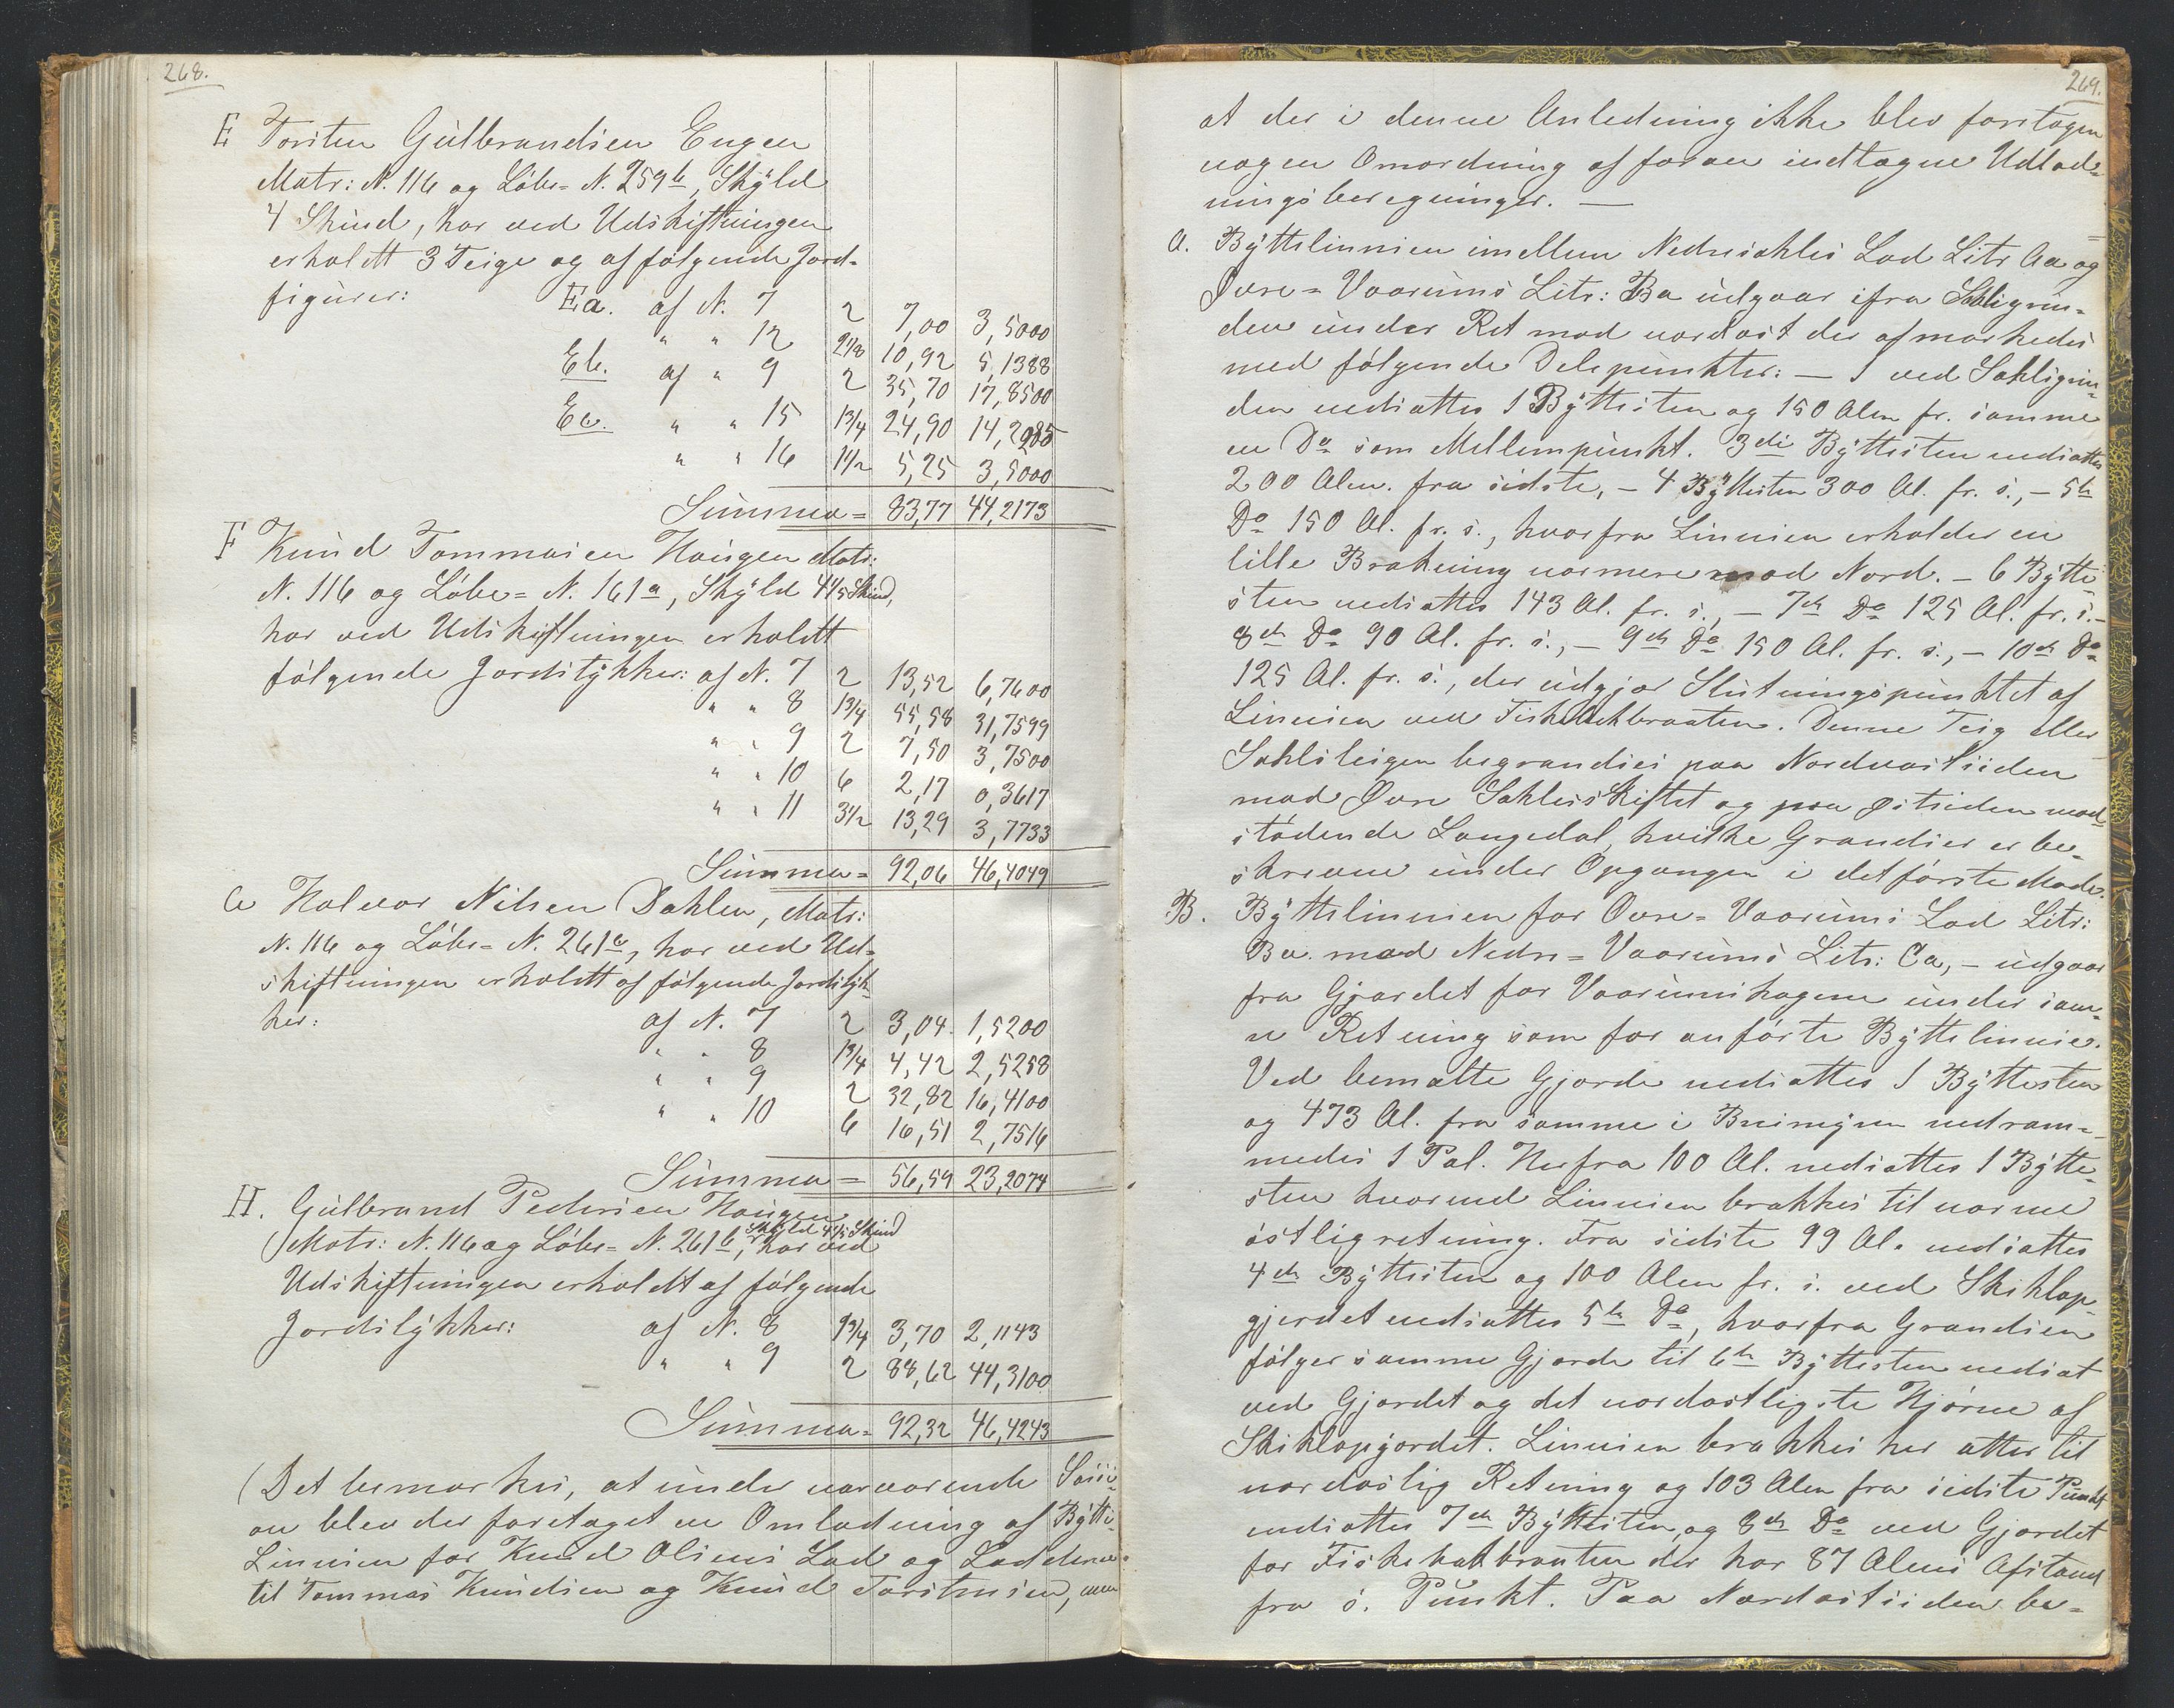 268.
E Torsten Gulbrandsen Engen
Matr: N. 116 og Løbe- N. 259b, Skyld
4 Skind, har ved Udskiftningen
erholdt 3 Teige og af følgende Jord-
figurer: Ea. af N. 7 2 7,00 3,5000
" " 12 2 1/8 10,92 5,1388
Eb. af " 9 2 35,70 17,8500
Ec. " " 15 1 3/4 24,90 14,2285
" " 16 1 1/2 5,25 3,5000
Summa = 83,77 44,2173
F Knud Tommasen Haugen Matr:
N. 116 og Løbe- N. 161a, Skyld 4 1/5 Skind,
har ved Udskiftningen erholdt
følgende Jordstykker: af N. 7 2 13,52 6,7600
" " 8 1 3/4 55,58 31,7599
" " 9 2 7,50 3,7500
" " 10 6 2,17 0,3617
" " 11 3 1/2 13,29 3,7733
Summa = 92,06 46,4049
G Halvor Nilsen Dahlen, Matr:
N. 116 og Løbe- N. 261c, har ved Ud-
skiftningen erholdt af følgende Jordstyk-
ker: af N. 7 2 3,04 1,5200
" " 8 1 3/4 4,42 2,5258
" " 9 2 32,82 16,4100
" " 10 6 16,51 2,7516
Summa = 56,59 23,2074
H. Gulbrand Pedersen Haugen
Skyld 4 1/5 Skind
(Matr: N. 116 og Løbe- N. 261b, har ved
Udskiftningen erholdt af følgende
Jordstykker: af N. 8 1 3/4 3,70 2,1143
" " 9 2 88,62 44,3100
Summa = 92,32 46,4243
(Det bemærkes, at under nærværende Sessi-
on blev der foretaget en Omlodning af Bytte-
Linnien for Knud Olsens Lod og Lodderne
til Tommas Knudsen og Knud Torstensen, men
269.
at der i denne Anledning ikke blev foretagen
nogen Omordning af foran indtagne Udlod-
ningsberegninger. —
A. Byttelinnien imellem Nedresahles Lod Litr Aa og
Øvre- Vaarums Litr: Ba udgaar ifra Sahligrin-
den under Ret mod nordost der afmærkedes
med følgende Delepunkter: — 1 ved Sahligrin-
den nedsattes 1 Byttesten og 150 Alen fr. samme
en Do som Mellempunkt. 3die Byttesten nedsattes
200 Alen. fra sidste, — 4 Byttesten 300 Al. fr. s., — 5te
Do 150 Al. fr. s., hvorfra Linnien erholder en
lille Brækning nærmere mod Nord. — 6 Bytte-
sten nedsattes 143 Al. fr. s., — 7de Do 125 Al. fr. s. —
8de Do 90 Al. fr. s., — 9de Do 150 Al. fr. s., — 10de Do
125 Al. fr. s., der udgjør Slutningspunktet af
Linnien ved Fiskebækbraaten. Denne Teig eller
Sahlsteigen begrændses paa Nordvestsiden
mod Øvre Sahlesskiftet og paa Østsiden mod
stødende Langedal, hvilke Grændser er be-
skrevne under Opgangen i det første Møde.
B. Byttelinnien for Øvre- Vaarums Lod Litr:
Ba. mod Nedre- Vaarums Litr: Ca, — udgaar
fra Gjærdet for Vaarumshagene under sam-
me Retning som før anførte Byttelinnie.
Ved bemælte Gjærde nedsattes 1 Byttesten
og 473 Al. fra samme i Bruimyren nedram-
medes 1 Pæl. Herfra 100 Al. nedsattes 1 Bytte-
sten hvorved Linnien brækkes til nærme
østlig retning. Fra sidste 99 Al. nedsattes
4de Byttesten og 100 Alen fr. s. ved Skiklop-
gjerdet nedsattes 5te Do, hvorfra Grændsen
følger samme Gjærde til 6te Byttesten nedsat
ved Gjærdet og det nordøstligste Hjørne af
Skiklopgjærdet. Linnien brækkes her atter til
nordostlig Retning og 103 Alen fra sidste Punkt
nedsattes 7de Byttesten, og 8de Do ved Gjærdet
for Fiskebækbraaten der har 87 Alens Afstand
fra s. Punkt. Paa Nordostsiden be-